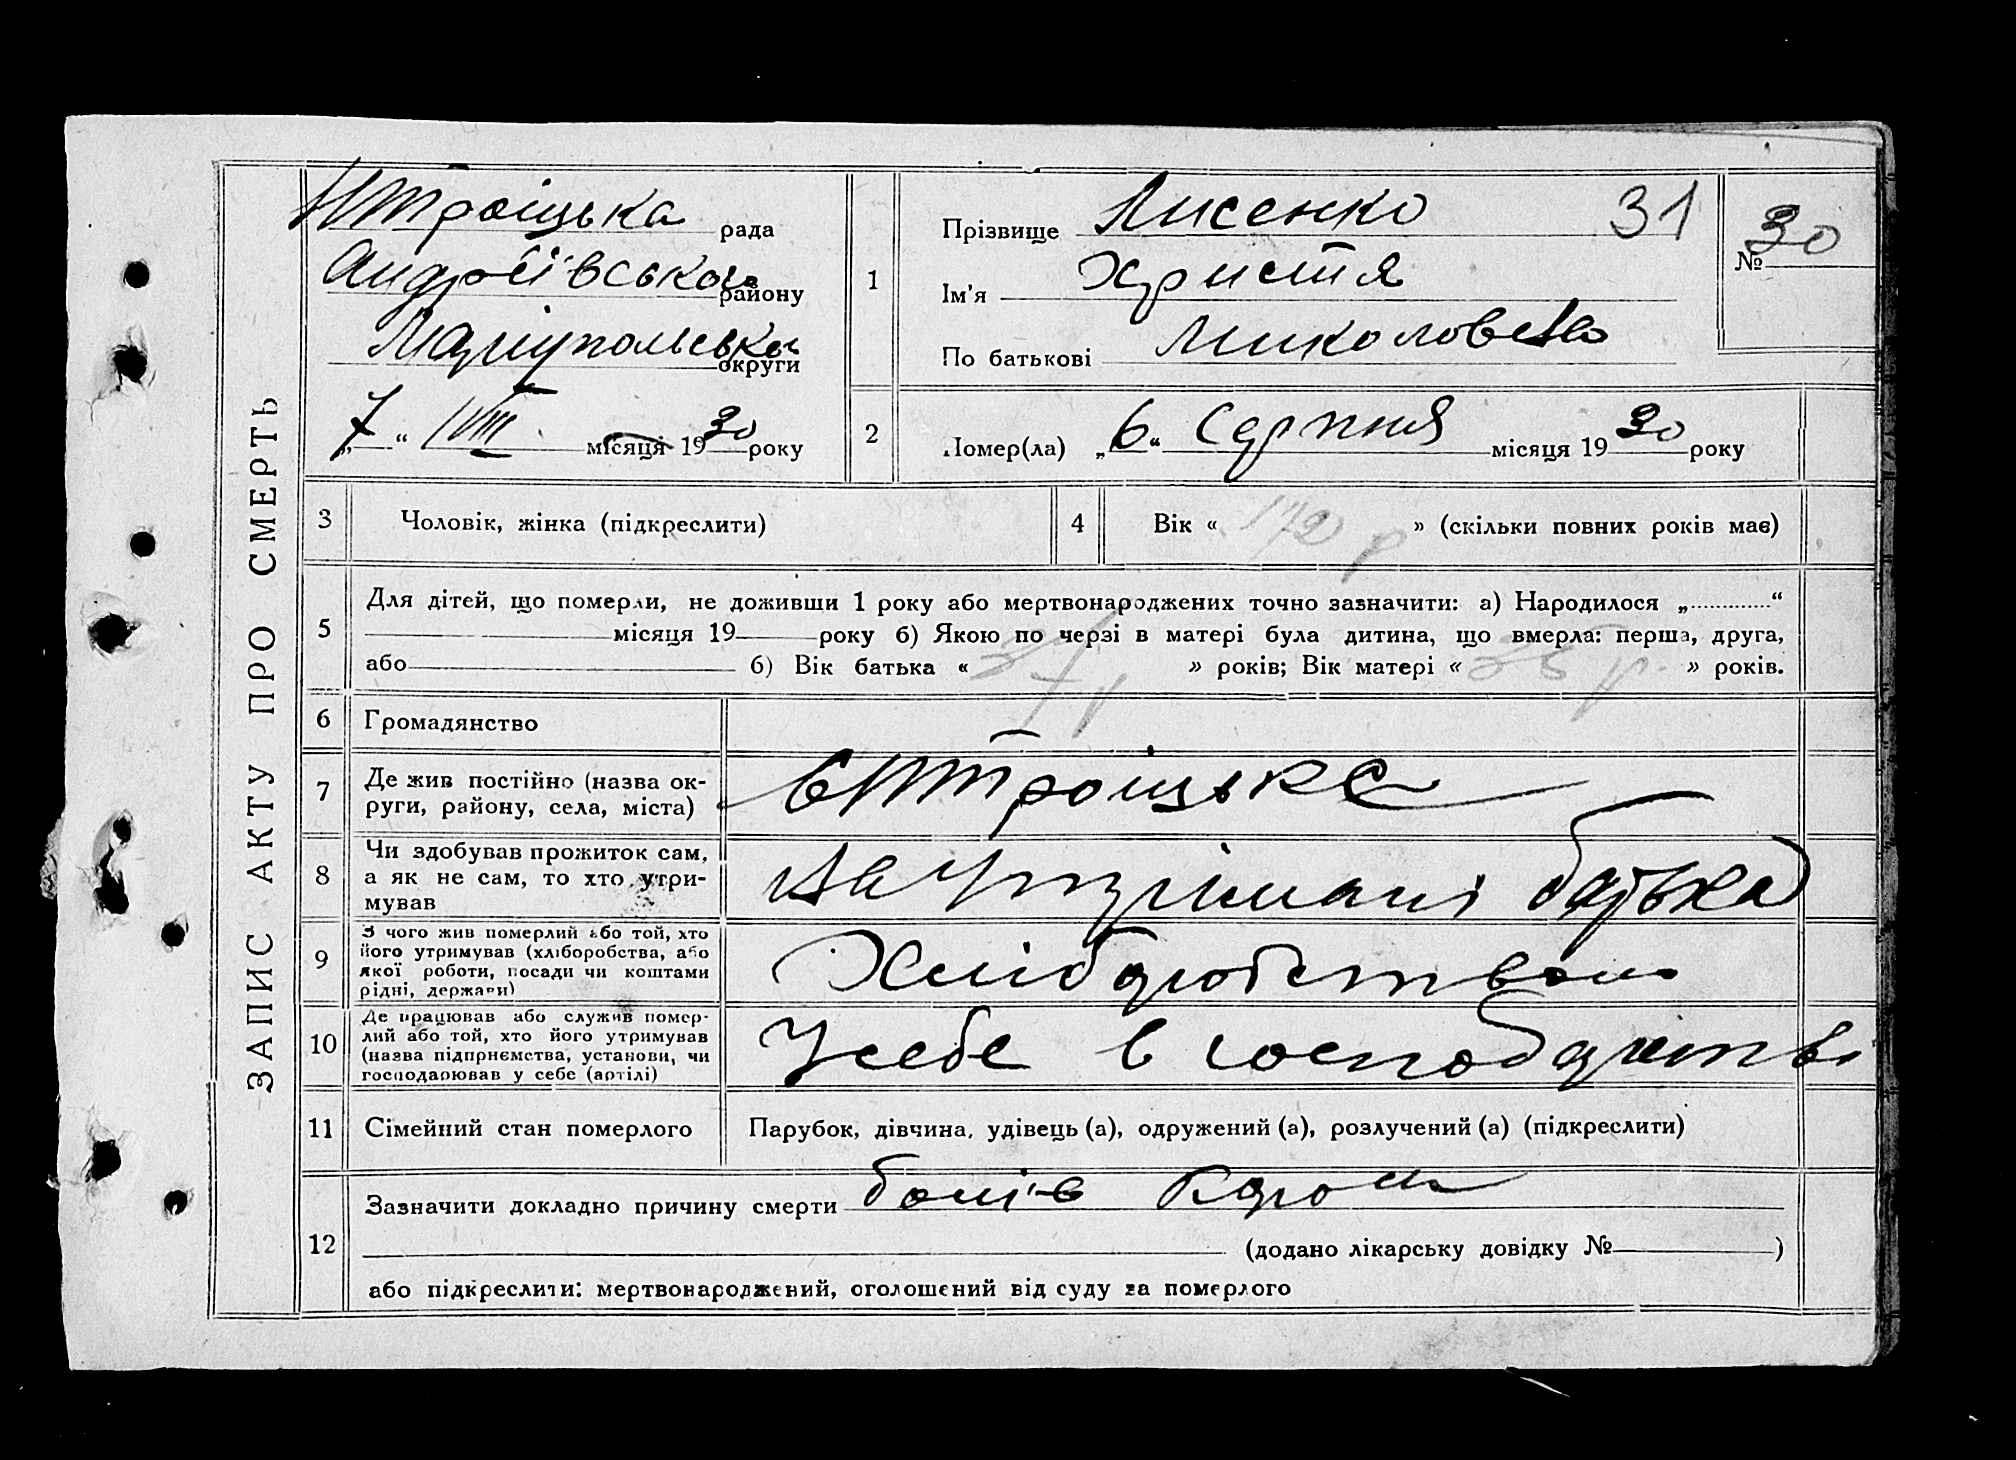 ЗАПИС АКТУ ПРО СМЕРТЬ
НТроіцька рада
Андріївського району
Маріупольська округи
„ 7 “ VIII місяця 1930 року
1
Прізвище Лисенко 31
Ім'я Христя
По батькові Миколовна
№ 30
2
Помер(ла) „ 6 “ Серпня місяця 1930 року
3 Чоловік, жінка (підкреслити)
4 Вік « » (скільки повних років має)
5
Для дітей, що померли, не доживши 1 року або мертвонароджених точно зазначити: а) Народилося „ “
місяця 19 року б) Якою по черзі в матері була дитина, що вмерла: перша, друга,
або б) Вік батька « 37 р » років; Вік матері « 35 р. » років.
6 Громадянство
7
Де жив постійно (назва ок-
руги, району, села, міста)
с НТроіцьке
8
Чи здобував прожиток сам,
а як не сам, то хто утри-
мував
На утрімані батька
9
З чого жив померлий або той, хто
його утримував (хліборобства, або
якої роботи, посади чи коштами
рідні, держави)
Хліборобством
10
Де працював або служив помер-
лий або той, хто його утримував
(назва підприємства, установи, чи
господарював у себе (артілі)
У себе в господарстві
11 Сімейний стан померлого
Парубок, дівчина, удівець (а), одружений (а), розлучений (а) (підкреслити)
12
Зазначити докладно причину смерти болів
(додано лікарську довідку № )
або підкреслити: мертвонароджений, оголошений від суду за померлого